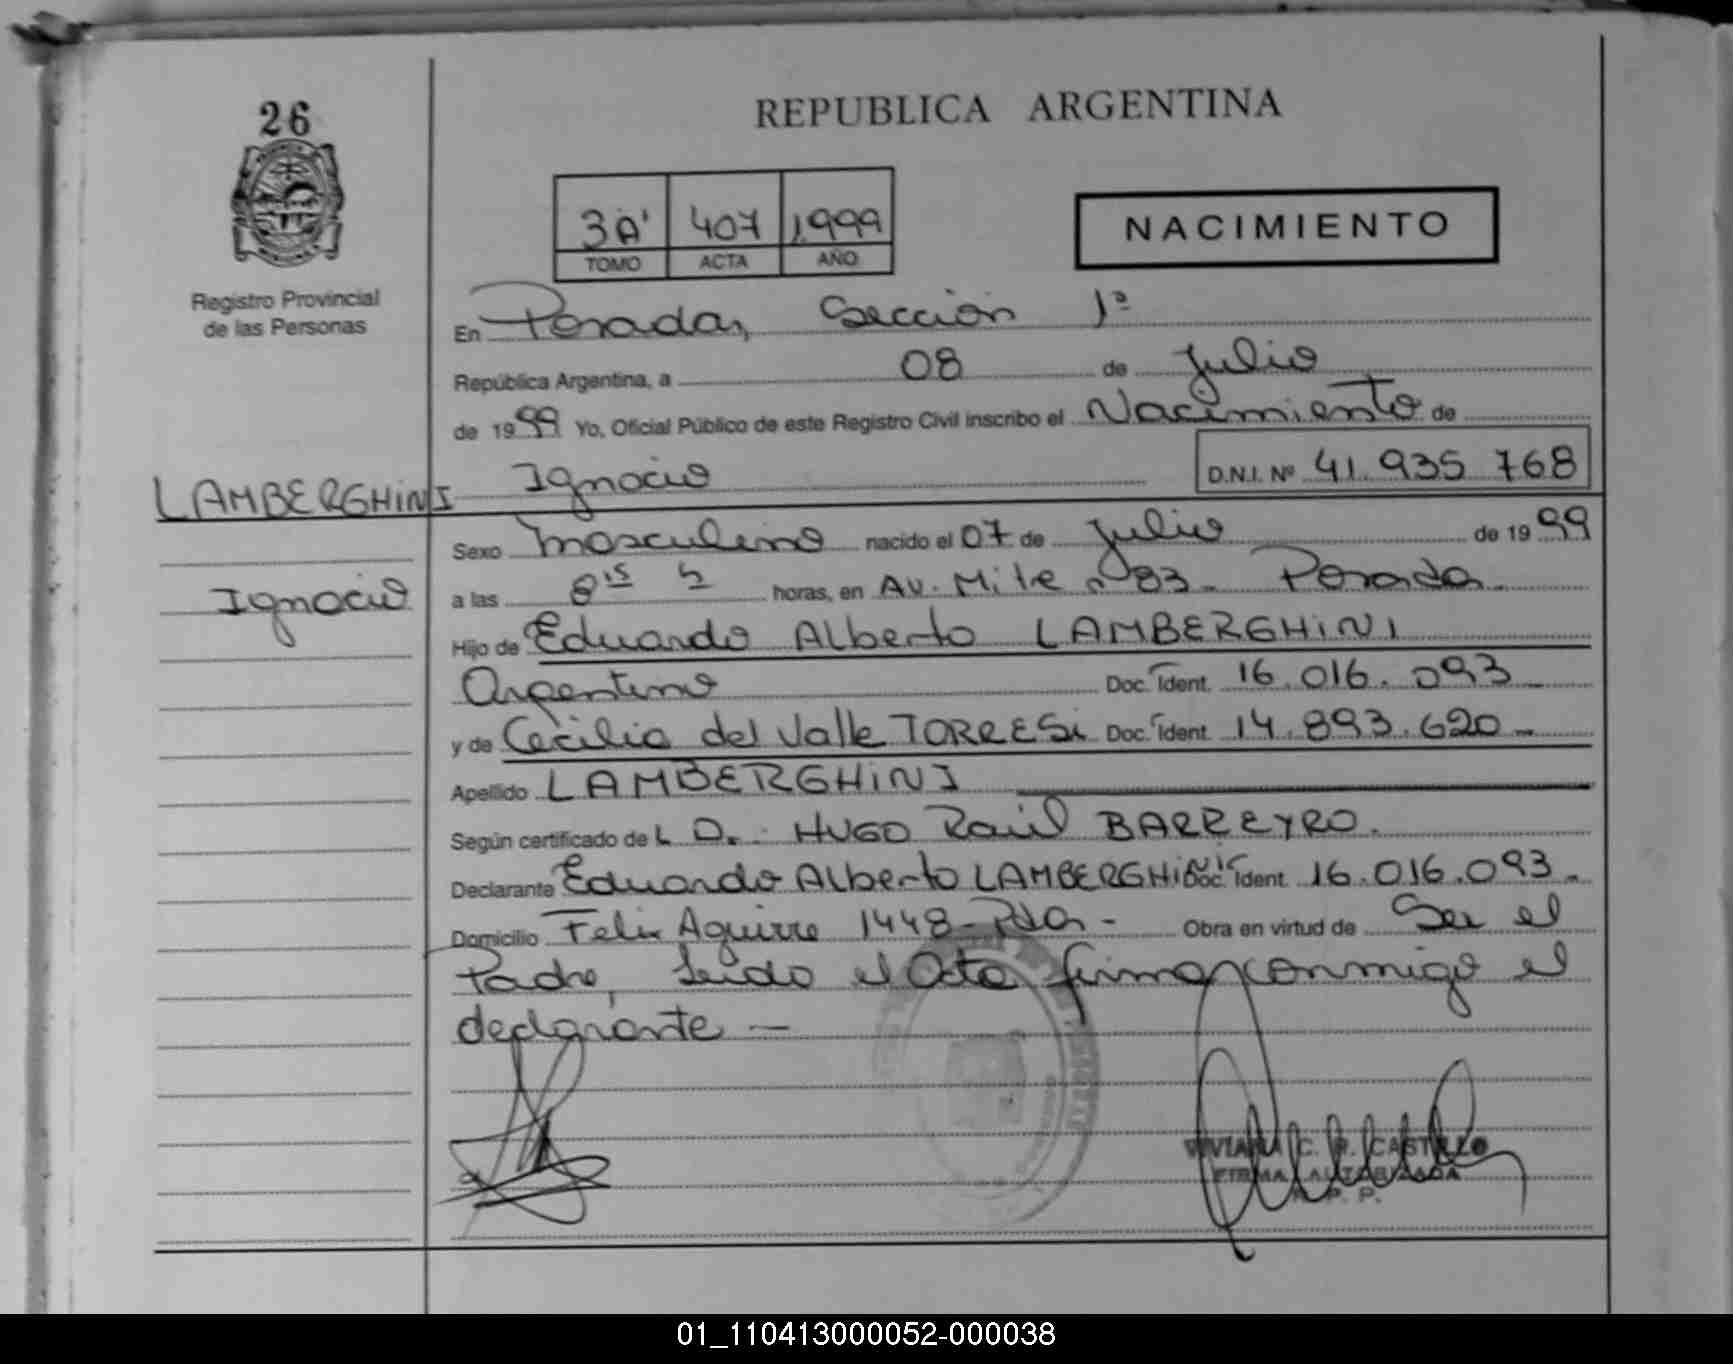 26
REPUBLICA ARGENTINA
3A' 407 1.999
TOMO ACTA AÑO
NACIMIENTO
Registro Provincial
de las Personas
En Posadas, Sección 1ª
República Argentina, a 08 de Julio
de 1999 Yo, Oficial Público de este Registro Civil inscribo el Nacimiento de
Ignacio D.N.I. Nº 41.935.768
LAMBERGHINI
Ignacio
Sexo masculino nacido el 07 de Julio de 1999
a las 8 15 h horas, en Av. Mitre nº 83 - Posadas
Hijo de Eduardo Alberto LAMBERGHINI
Argentino Doc. Ident. 16.016.093
y de Cecilia del Valle TORRESi Doc. Ident. 14.893.620
Apellido LAMBERGHINI
Según certificado de L D. HUGO Raúl BARREYRO.
Declarante Eduardo Alberto LAMBERGHINI Doc. Ident. 16.016.093
Domicilio Felix Aguirre 1448 - Pdas - Obra en virtud de Ser el
Padre, Leida el Acta firma conmigo el
declarante —
VIVIANA C. R. CASTILLO
FIRMA AUTORIZADA
R. P. P.
01_110413000052-000038